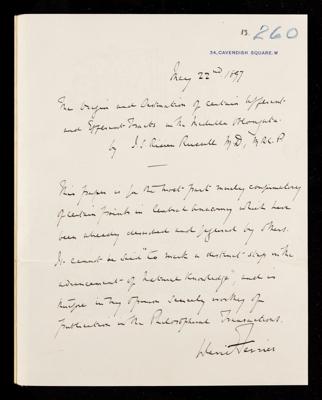 13. 260
34, CAVENDISH SQUARE. W
May 22nd 1897
The Origin and Destination of certain Afferent
and Efferent Tracts in the Medulla Oblongata.
by J. S. Risien Russell M.D., M.R.C.P.
This paper is for the most part merely confirmatory
of certain points in central anatomy which have
been already described and figured by others.
It cannot be said "to mark a distinct step in the
advancement of Natural Knowledge", and is
in my opinion worthy of
publication in the Philosophical Transactions.
David Ferrier